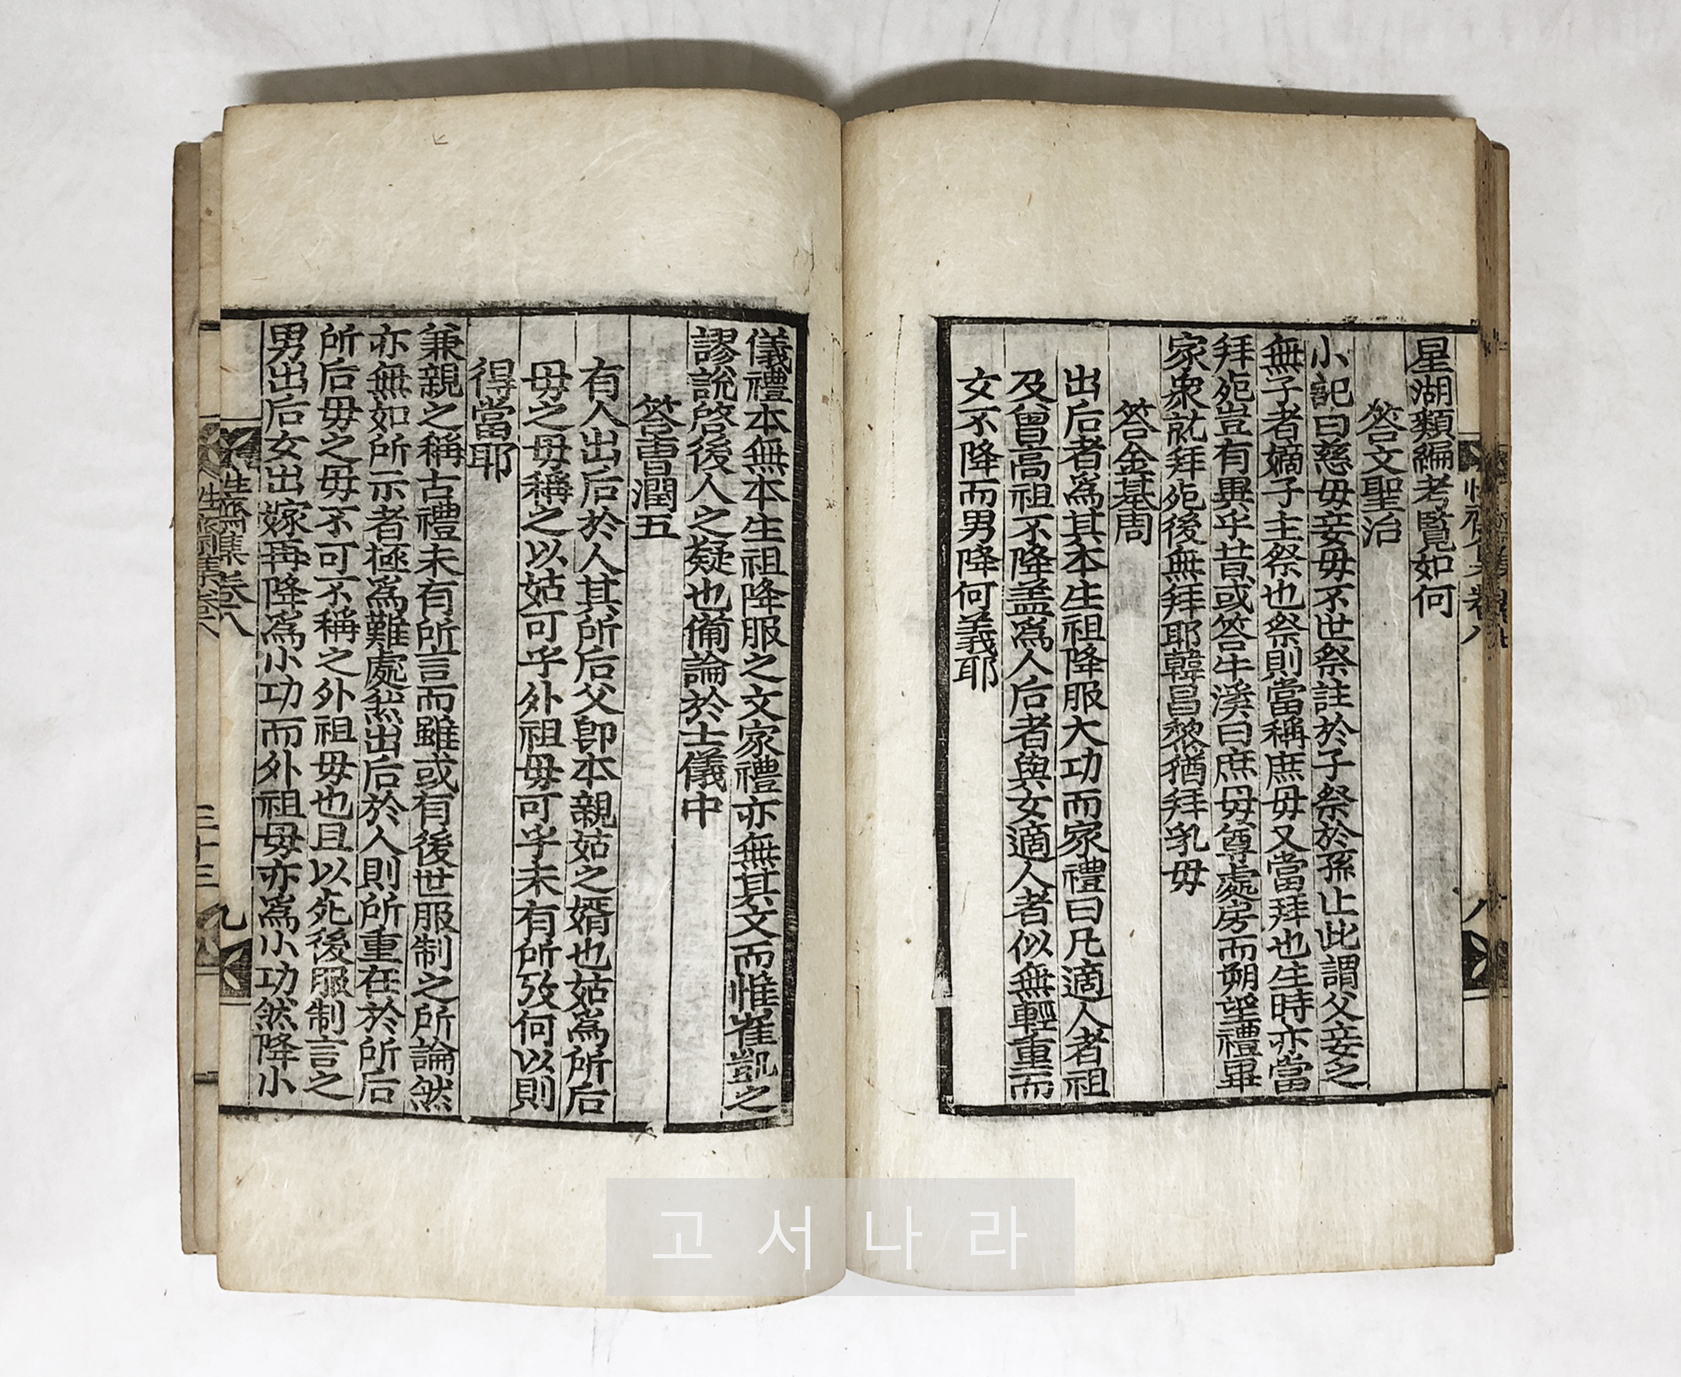 星湖類編考覽如何
答文聖治
小記曰慈母妾母不世祭註於子祭於孫止此謂父妾之
無子者嫡子主祭也祭則當稱庶母又當拜也生時亦當
拜豈有異乎昔或答牛溪曰庶母尊處房而朔望禮畢
家衆就拜後無拜耶韓昌黎猶拜乳母
答金基周
出后者爲其本生祖降服大功而家禮曰凡適人者祖
及曾高祖不降盖爲人后者與女適人者似無輕重而
女不降而男降何義耶
儀禮本無本生祖降服之文家禮亦無其文而惟崔凱之
謬說啓後人之疑也備論於士儀中
答曺潤五
有人出后於人其所后父卽本親姑之壻也姑爲所后
母之母稱之以姑可乎外祖母可乎未有所攷何以則
得當耶
兼親之稱古禮未有所言而雖或有後世服制之所論然
亦無如所示者極爲難處然出后於人則所重在於所后
所后母之母不可不稱之外祖母也且以死後服制言之
男出后女出嫁再降爲小功而外祖母亦爲小功然降小
性齋集卷八
九
性齋集卷八
三十三
卷八
八
고서나라